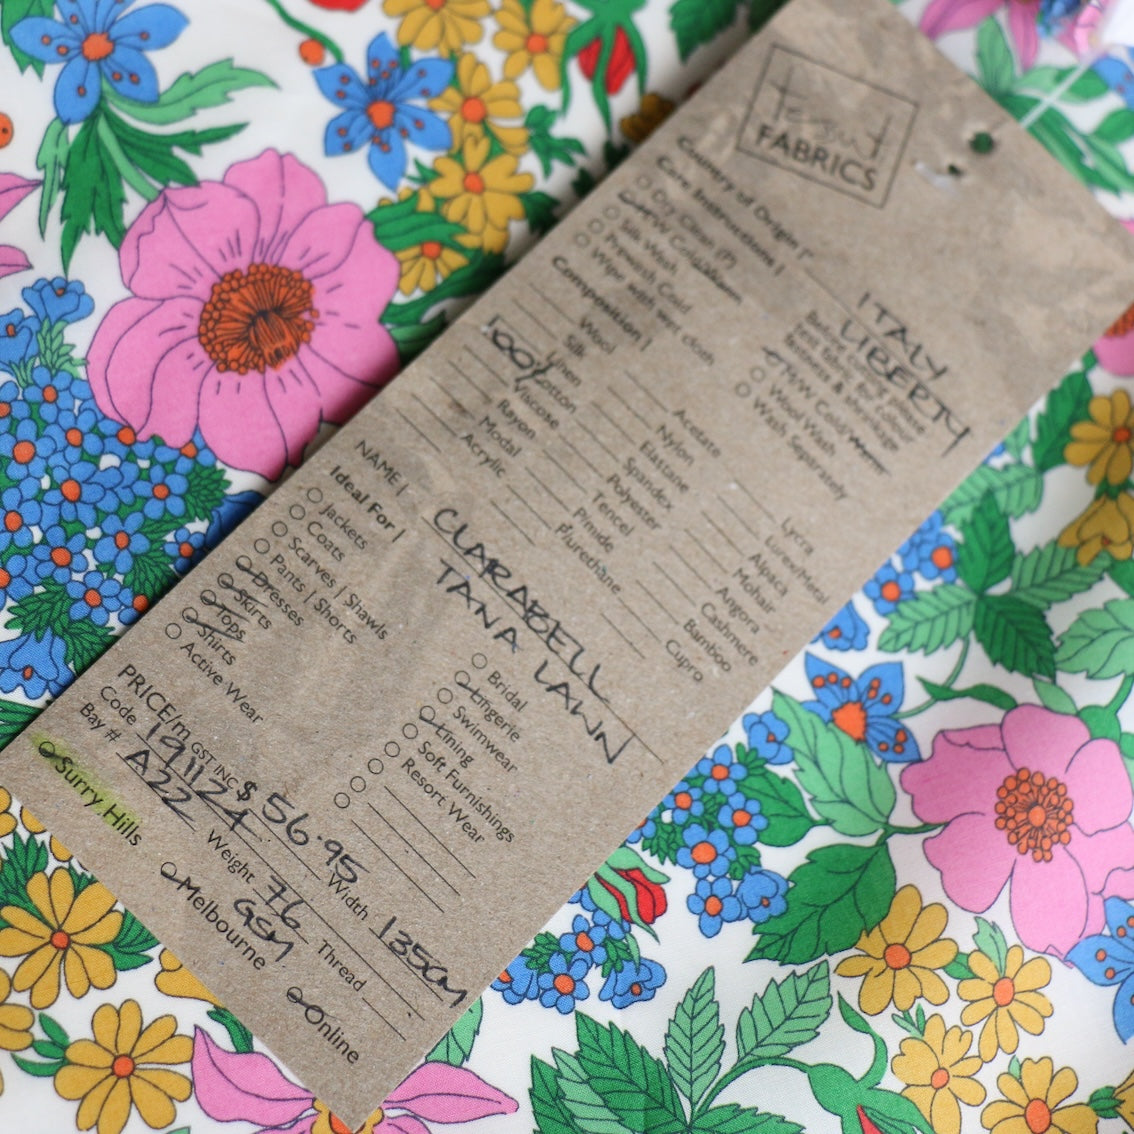 Tessuti
FABRICS
Country of Origin | ITALY
LIBERTY
Care Instructions |
Dry Clean (P)
H/W Cold/Warm
Silk Wash
Prewash Cold
Wipe with wet cloth
Before cutting please
test fabric for colour
fastness & shrinkage
M/W Cold/Warm
Wool Wash
Wash Separately
Composition |
Wool
Silk
Linen
100% Cotton
Viscose
Rayon
Modal
Acrylic
Acetate
Nylon
Elastane
Spandex
Polyester
Tencel
Pimide
P/urethane
Lycra
Lurex/Metal
Alpaca
Mohair
Angora
Cashmere
Bamboo
Cupro
NAME | CLARABELL
TANA LAWN
Ideal For |
Jackets
Coats
Scarves | Shawls
Pants | Shorts
Dresses
Skirts
Tops
Shirts
Active Wear
Bridal
Lingerie
Swimwear
Lining
Soft Furnishings
Resort Wear
PRICE/m GST INC $ 56.95
Code 191124 Width 135cm
Bay # A22 Weight 76 GSM Thread
Surry Hills Melbourne Online